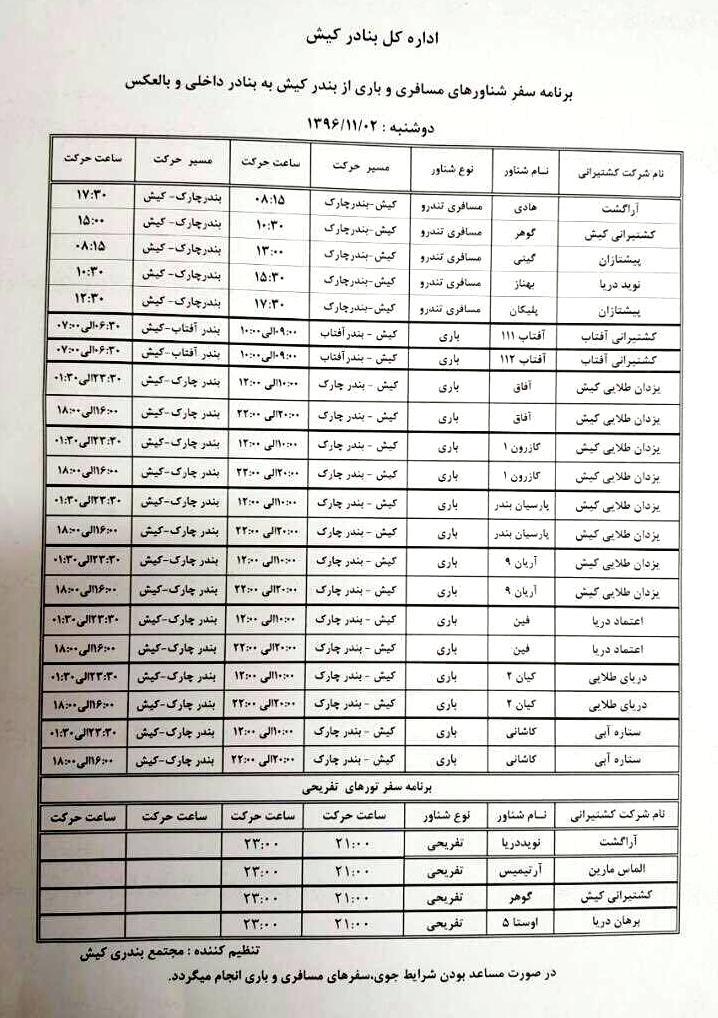 اداره کل بنادر کیش
برنامه سفر شناورهای مسافری و باری از بندر کیش به بنادر داخلی و بالعکس
دوشنبه : ۱۳۹۶/۱۱/۰۲
نام شرکت کشتیرانی نـام شناور نوع شناور مسیر حرکت ساعت حرکت مسیر حرکت ساعت حرکت
آراگشت هادی مسافری تندرو کیش-بندرچارک ۰۸:۱۵ بندرچارک- کیش ۱۷:۳۰
کشتیرانی کیش گوهر مسافری تندرو کیش-بندرچارک ۱۰:۳۰ بندرچارک- کیش ۱۵:۰۰
پیشتازان گینی مسافری تندرو کیش-بندرچارک ۱۳:۰۰ بندرچارک- کیش ۰۸:۱۵
نوید دریا بهناز مسافری تندرو کیش-بندرچارک ۱۵:۳۰ بندرچارک- کیش ۱۰:۳۰
پیشتازان پلیکان مسافری تندرو کیش-بندرچارک ۱۷:۳۰ بندرچارک- کیش ۱۲:۳۰
کشتیرانی آفتاب آفتاب ۱۱۱ باری کیش - بندرآفتاب ۰۹:۰۰الی۱۰:۰۰ بندر آفتاب-کیش ۰۶:۳۰الی۰۷:۰۰
کشتیرانی آفتاب آفتاب ۱۱۲ باری کیش - بندرآفتاب ۰۹:۰۰الی۱۰:۰۰ بندر آفتاب-کیش ۰۶:۳۰الی۰۷:۰۰
یزدان طلایی کیش آفاق باری کیش - بندر چارک ۱۰:۰۰الی ۱۲:۰۰ بندر چارک-کیش ۲۳:۳۰الی۰۱:۳۰
یزدان طلایی کیش آفاق باری کیش - بندر چارک ۲۰:۰۰الی ۲۲:۰۰ بندر چارک-کیش ۱۶:۰۰الی۱۸:۰۰
یزدان طلایی کیش کازرون ۱ باری کیش - بندر چارک ۱۰:۰۰الی ۱۲:۰۰ بندر چارک-کیش ۲۳:۳۰الی۰۱:۳۰
یزدان طلایی کیش کازرون ۱ باری کیش - بندر چارک ۲۰:۰۰الی ۲۲:۰۰ بندر چارک-کیش ۱۶:۰۰الی۱۸:۰۰
یزدان طلایی کیش پارسیان بندر باری کیش - بندر چارک ۱۰:۰۰الی ۱۲:۰۰ بندر چارک-کیش ۲۳:۳۰الی۰۱:۳۰
یزدان طلایی کیش پارسیان بندر باری کیش - بندر چارک ۲۰:۰۰الی ۲۲:۰۰ بندر چارک-کیش ۱۶:۰۰الی۱۸:۰۰
یزدان طلایی کیش آریان ۹ باری کیش - بندر چارک ۱۰:۰۰الی ۱۲:۰۰ بندر چارک-کیش ۲۳:۳۰الی۰۱:۳۰
یزدان طلایی کیش آریان ۹ باری کیش - بندر چارک ۲۰:۰۰الی ۲۲:۰۰ بندر چارک-کیش ۱۶:۰۰الی۱۸:۰۰
اعتماد دریا فین باری کیش - بندر چارک ۱۰:۰۰الی ۱۲:۰۰ بندر چارک-کیش ۲۳:۳۰الی۰۱:۳۰
اعتماد دریا فین باری کیش - بندر چارک ۲۰:۰۰الی ۲۲:۰۰ بندر چارک-کیش ۱۶:۰۰الی۱۸:۰۰
دریای طلایی کیان ۲ باری کیش - بندر چارک ۱۰:۰۰الی ۱۲:۰۰ بندر چارک-کیش ۲۳:۳۰الی۰۱:۳۰
دریای طلایی کیان ۲ باری کیش - بندر چارک ۲۰:۰۰الی ۲۲:۰۰ بندر چارک-کیش ۱۶:۰۰الی۱۸:۰۰
ستاره آبی کاشانی باری کیش - بندر چارک ۱۰:۰۰الی ۱۲:۰۰ بندر چارک-کیش ۲۳:۳۰الی۰۱:۳۰
ستاره آبی کاشانی باری کیش - بندر چارک ۲۰:۰۰الی ۲۲:۰۰ بندر چارک-کیش ۱۶:۰۰الی۱۸:۰۰
برنامه سفر تورهای تفریحی
نام شرکت کشتیرانی نـام شناور نوع شناور ساعت حرکت ساعت حرکت ساعت حرکت ساعت حرکت
آراگشت نویددریا تفریحی ۲۱:۰۰ ۲۳:۰۰
الماس مارین آرتیمیس تفریحی ۲۱:۰۰ ۲۳:۰۰
کشتیرانی کیش گوهر تفریحی ۲۱:۰۰ ۲۳:۰۰
برهان دریا اوستا ۵ تفریحی ۲۱:۰۰ ۲۳:۰۰
تنظیم کننده : مجتمع بندری کیش
در صورت مساعد بودن شرایط جوی،سفرهای مسافری و باری انجام میگردد.